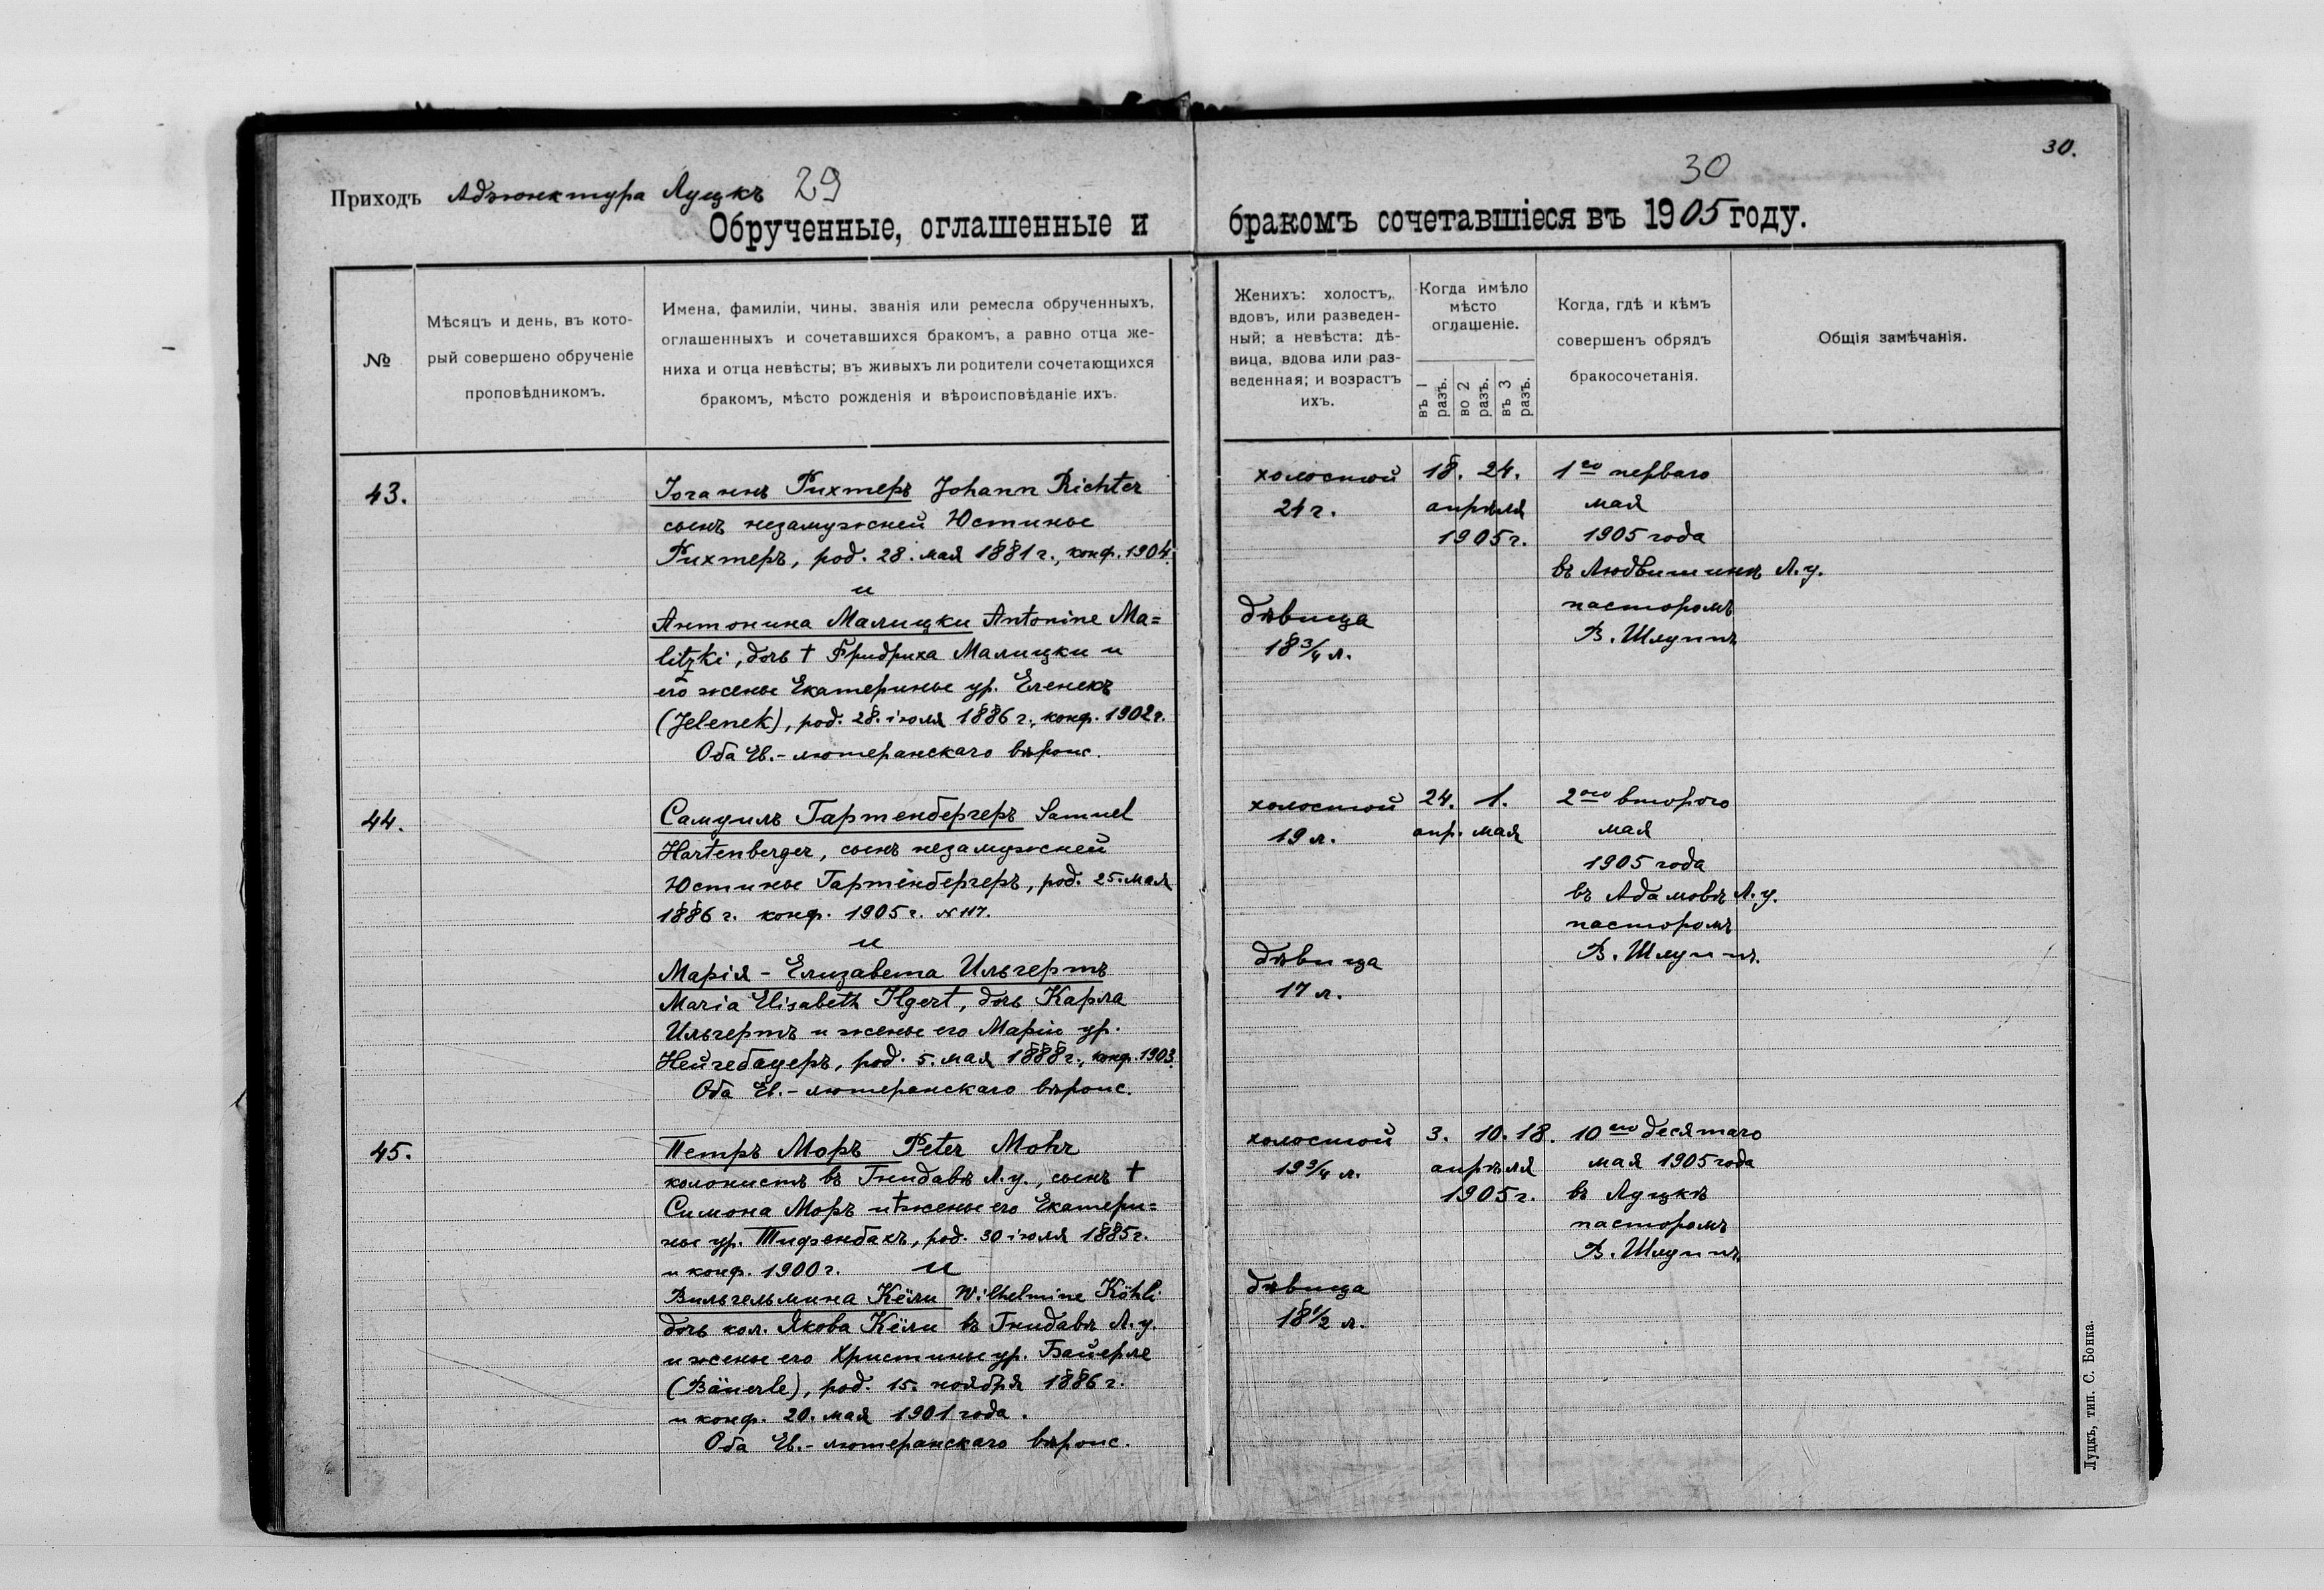 30.
Приходъ Адъюнктура Луцкъ 29
30
Обрученные, оглашенные и бракомъ сочетавшіеся въ 1905 году.
№
Мѣсяцъ и день, въ кото-
рый совершено обрученіе
проповѣдникомъ.
Имена, фамиліи, чины, званія или ремесла обрученныхъ,
оглашенныхъ и сочетавшихся бракомъ, а равно отца же-
ниха и отца невѣсты; въ живыхъ ли родители сочетающихся
бракомъ, мѣсто рожденія и вѣроисповѣданіе ихъ.
Женихъ: холостъ,
вдовъ, или разведен-
ный; а невѣста: дѣ-
вица, вдова или раз-
веденная; и возрастъ
ихъ.
Когда имѣло
мѣсто
оглашеніе.
въ 1
разъ.
во 2
разъ.
въ 3
разъ.
Когда, гдѣ и кѣмъ
совершенъ обрядъ
бракосочетанія.
Общія замѣчанія.
43.
Іоганнъ Рихтеръ Johann Richter
сынъ незамужней Юстины
Рихтеръ, род. 28. мая 1881 г., конф. 1904.
и
Антонина Малицки Antonine Ma=
litzki, дочь † Фридриха Малицки и
его жены Екатерины ур. Еленекъ
(Jelenek), род. 28. іюля 1886 г., конф. 1902 г.
Оба Ев.-лютеранскаго вѣроис.
холостой
24 г.
дѣвица
18 3/4 л.
18. 24.
апрѣля
1905 г.
1го перваго
мая
1905 года
въ Людвишинѣ Л. у.
пасторомъ
В. Шлуппъ
44.
Самуилъ Гартенбергеръ Samuel
Hartenberger, сынъ незамужней
Юстины Гартенбергеръ, род. 25. мая
1886 г. конф. 1905 г. № 117.
и
Марія - Елизавета Ильгертъ
Maria Elisabeth Ilgert, дочь Карла
Ильгертъ и жены его Маріи ур.
Нейгебауеръ, род. 5. мая 1888 г., конф. 1903.
Оба Ев.-лютеранскаго вѣроис.
холостой
19 л.
дѣвица
17 л.
24. 1.
апр. мая
2ого второго
мая
1905 года
въ Адамовѣ Л. у.
пасторомъ
В. Шлуппъ.
45.
Петръ Моръ Peter Mohr
колонистъ въ Гнидавѣ Л. у., сынъ †
Симона Моръ и † жены его Екатери=
ны ур. Тифенбахъ, род. 30 іюля 1885 г.
и конф. 1900 г. и
Вильгельмина Кёли Wilhelmine Köhli
дочь кол. Якова Кёли въ Гнидавѣ Л. у.
и жены его Христины ур. Байерле
(Bäuerle), род. 15. ноября 1886 г.
и конф. 20. мая 1901 года.
Оба Ев.-лютеранскаго вѣроис.
холостой
19 3/4 л.
дѣвица
18 1/2 л.
3. 10. 18.
апрѣля
1905 г.
10го десятаго
мая 1905 года
въ Луцкѣ
пасторомъ
В. Шлуппъ.
Луцкъ, тип. С. Бонка.